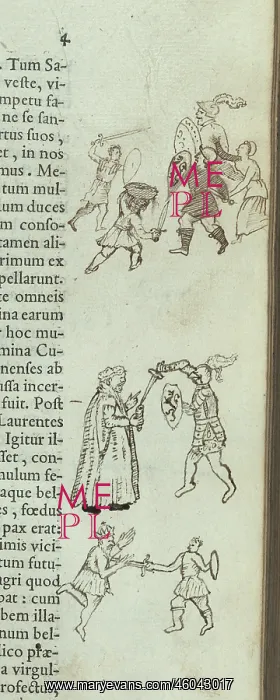 4
. Tum Sa-
veste, vi-
mpetu fa-
ne se san-
rtus suos,
et, in nos
mus. Me-
tum mul-
lum duces
m conso-
tamen ali-
rimum ex
pellarunt.
te omneis
ina earum
r hoc mu-
mina Cu-
nenses ab
ussa incer-
fuit. Post
Laurentes
Igitur il-
sset, con-
mulum fe-
aque bel-
es, fœdus
pax erat:
imis vici-
tum futu-
agri quod
pat: cum
bem illa-
num bel-
lico præ-
a virgul-
rofectus,
ME
PL
ME
PL
www.maryevans.com/46043017